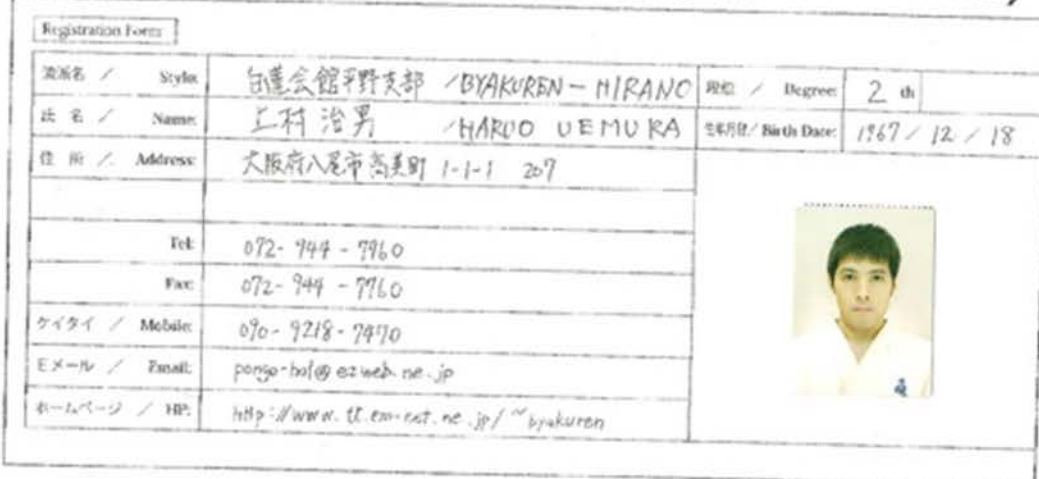 Registration Form
流派名 / Style: 白蓮会館平野支部 /BYAKUREN-HIRANO 段位 / Degree: 2 th
氏 名 / Name: 上村 治男 /HARUO UEMURA 生年月日/ Birth Date: 1967 / 12 / 18
住 所 / Address: 大阪府八尾市高美町 1-1-1 207
Tel: 072- 944 - 7960
Fax: 072- 944 - 7960
ケイタイ / Mobile: 090- 9218- 7470
Eメール / Email: @ ezweb.ne.jp
ホームページ / HP: http://www. .ne.jp/~byakuren